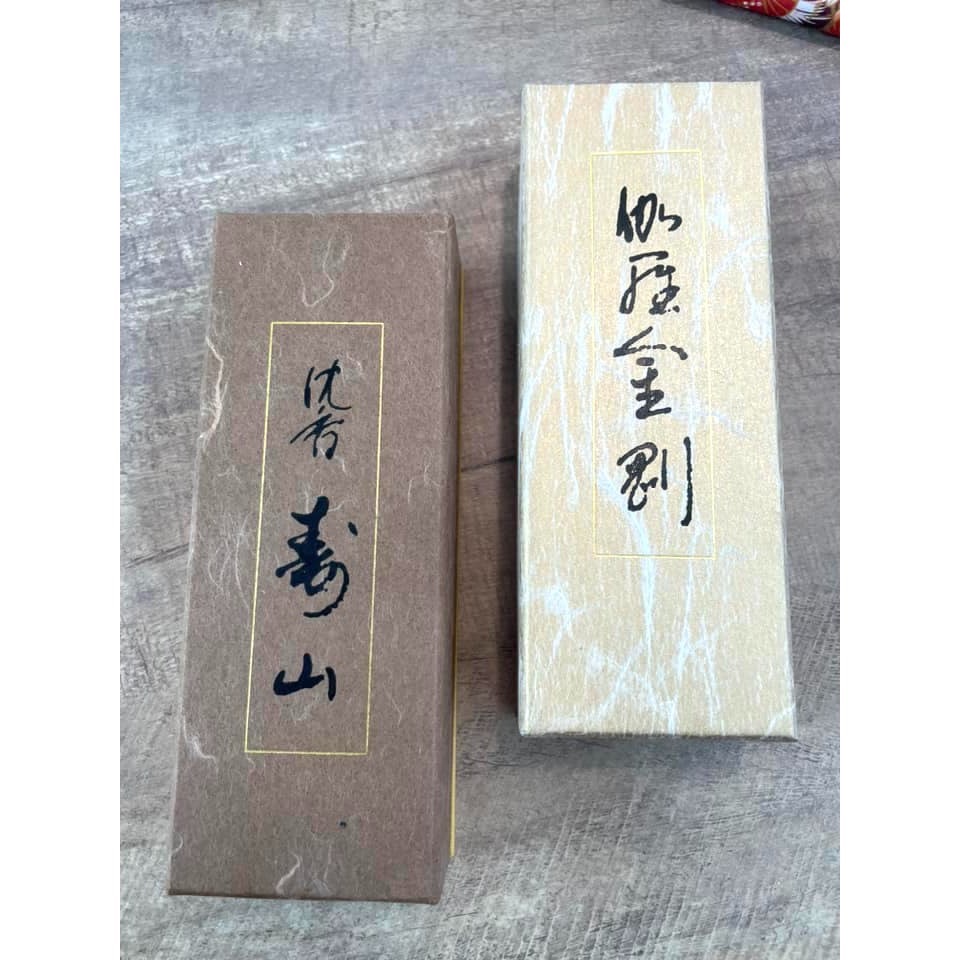 沈香
寿山
伽羅金剛